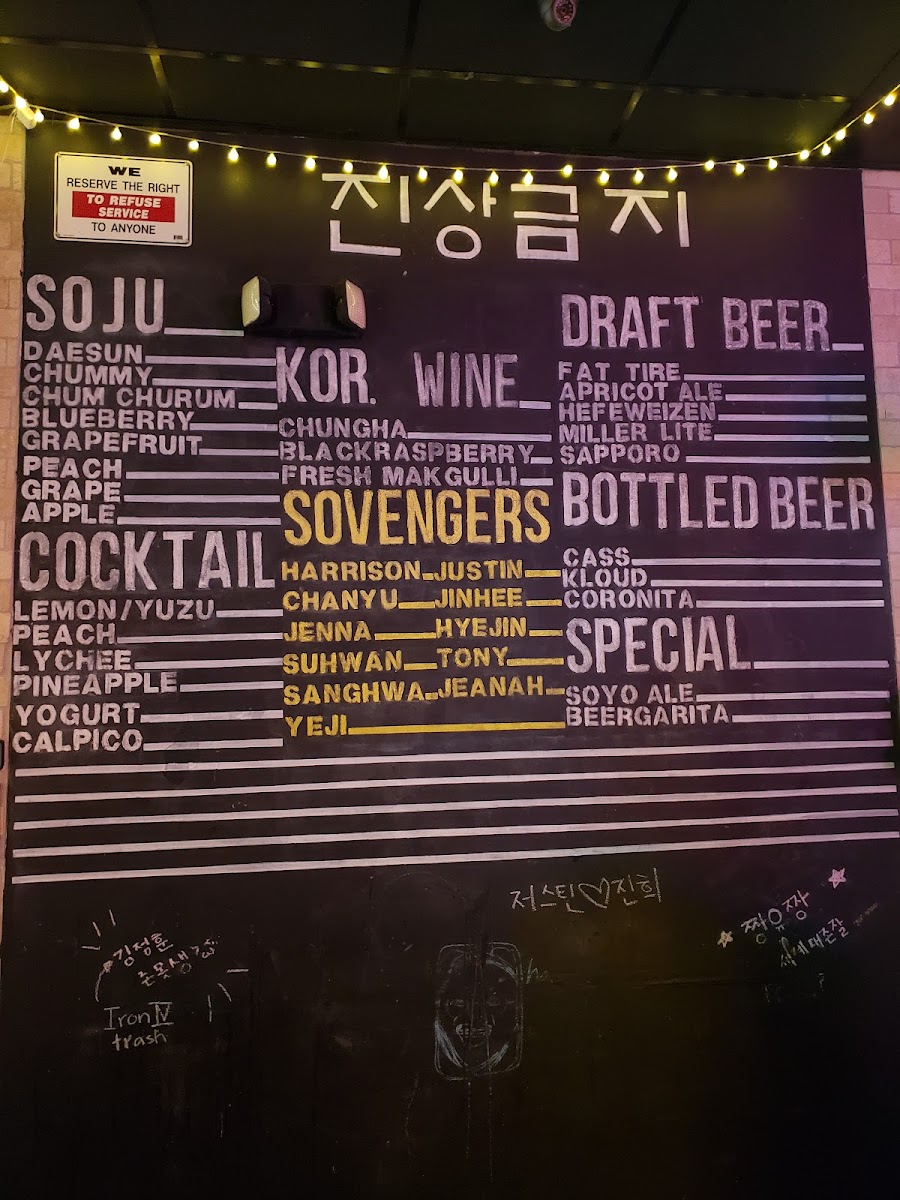 WE
RESERVE THE RIGHT
TO REFUSE
SERVICE
TO ANYONE
진상금지
SOJU
DAESUN
CHUMMY
CHUM CHURUM
BLUEBERRY
GRAPEFRUIT
PEACH
GRAPE
APPLE
COCKTAIL
LEMON/YUZU
PEACH
LYCHEE
PINEAPPLE
YOGURT
CALPICO
KOR. WINE
CHUNGHA
BLACKRASPBERRY
FRESH MAKGULLI
SOVENGERS
HARRISON JUSTIN
CHANYU JINHEE
JENNA HYEJIN
SUHWAN TONY
SANGHWA JEANAH
YEJI
DRAFT BEER
FAT TIRE
APRICOT ALE
HEFEWEIZEN
MILLER LITE
SAPPORO
BOTTLED BEER
CASS
KLOUD
CORONITA
SPECIAL
SOYO ALE
BEERGARITA
저스틴♡진희
김정훈
Iron IV
trash